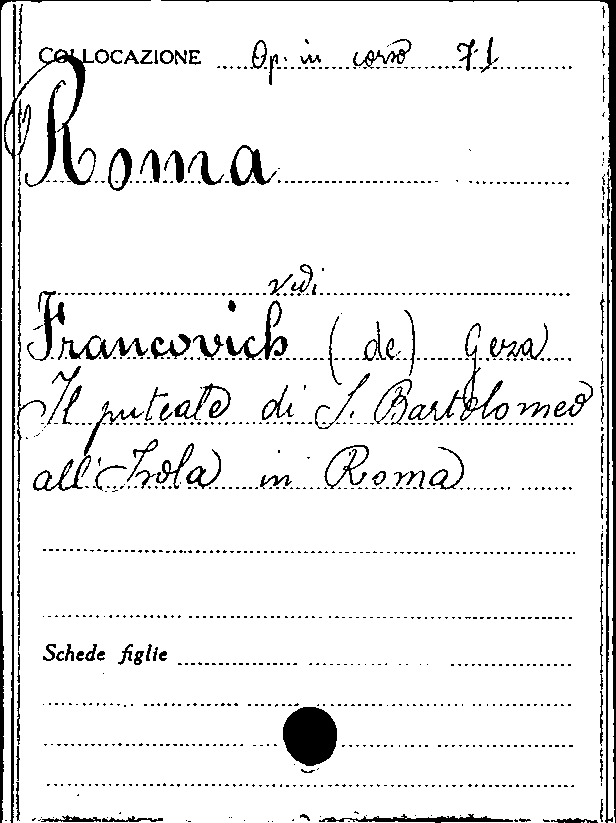 COLLOCAZIONE Op. in corso 71
Roma
vedi
Francovich (de) Geza
Il puteale di S. Bartolomeo
all'Isola in Roma
Schede figlie